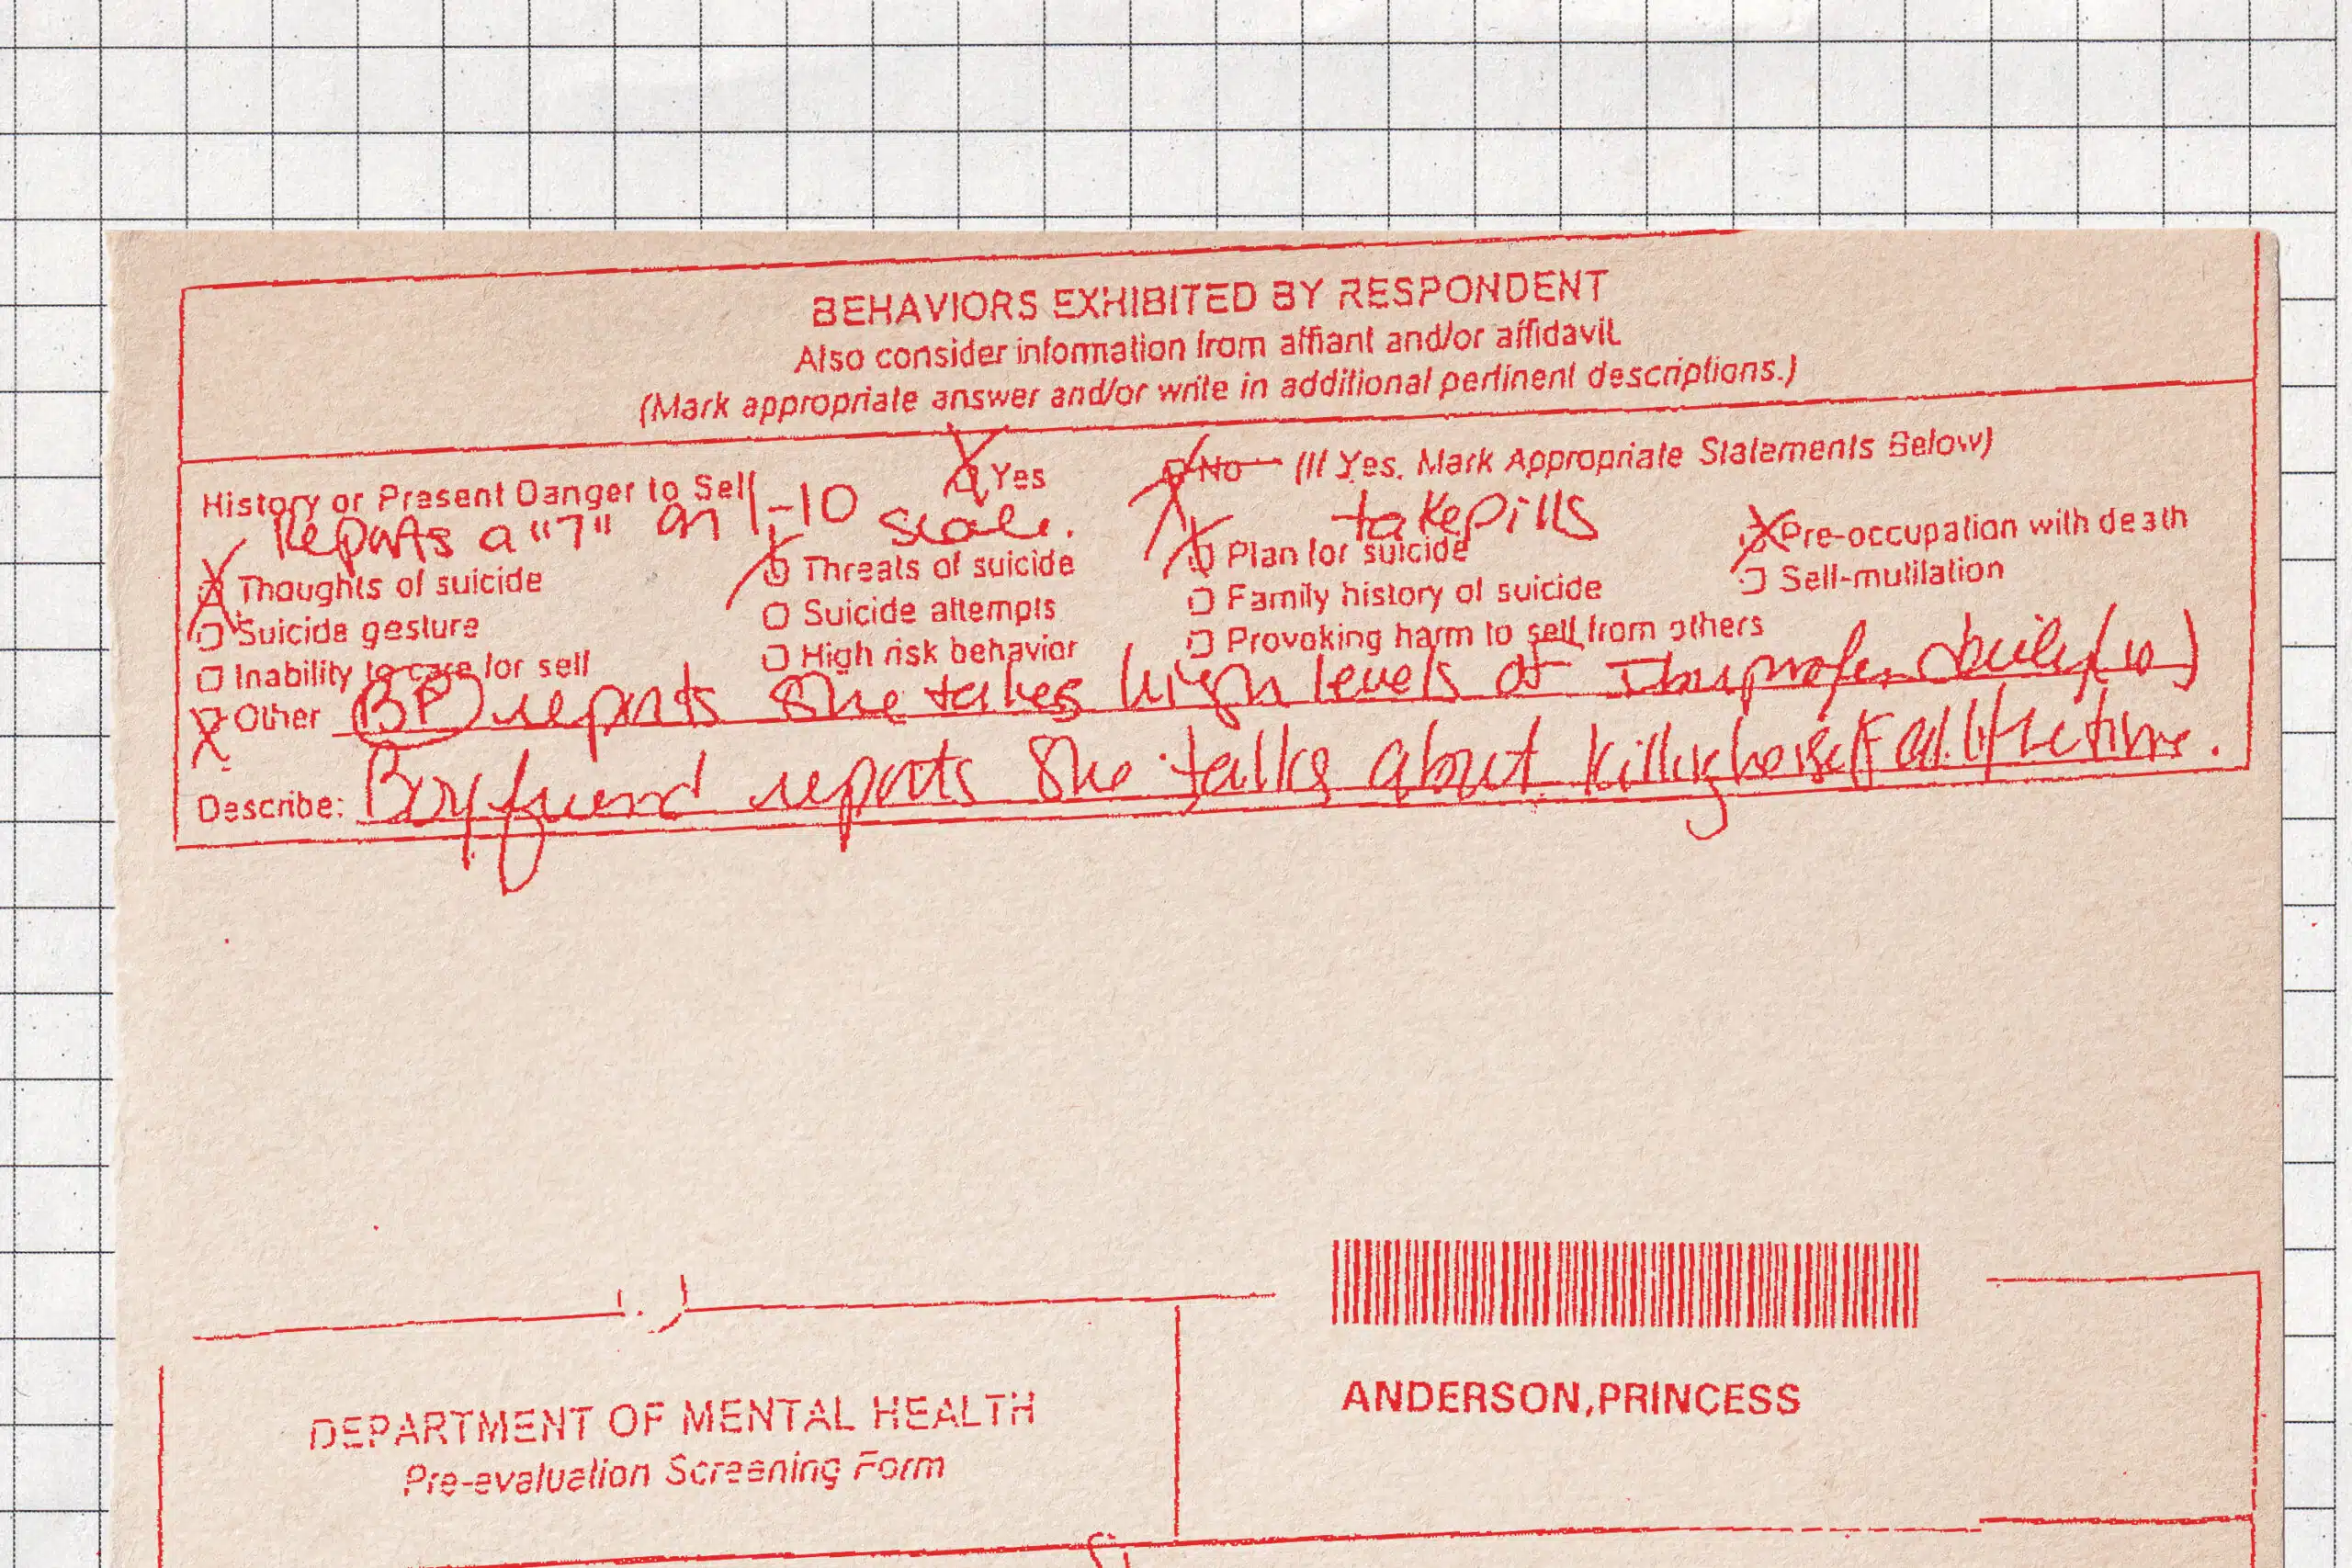 BEHAVIORS EXHIBITED BY RESPONDENT
Also consider information from affiant and/or affidavit.
(Mark appropriate answer and/or write in additional pertinent descriptions.)
History or Present Danger to Self Yes No (If Yes, Mark Appropriate Statements Below)
Reports a "7" on 1-10 scale. take pills
Thoughts of suicide Threats of suicide Plan for suicide Pre-occupation with death
Suicide gesture Suicide attempts Family history of suicide Self-mutilation
Inability to care for self High risk behavior Provoking harm to self from others
Other BF reports she takes high levels of Ibuprofen daily (10)
Describe: Boyfriend reports she talks about killing herself all the time.
DEPARTMENT OF MENTAL HEALTH
Pre-evaluation Screening Form
ANDERSON,PRINCESS